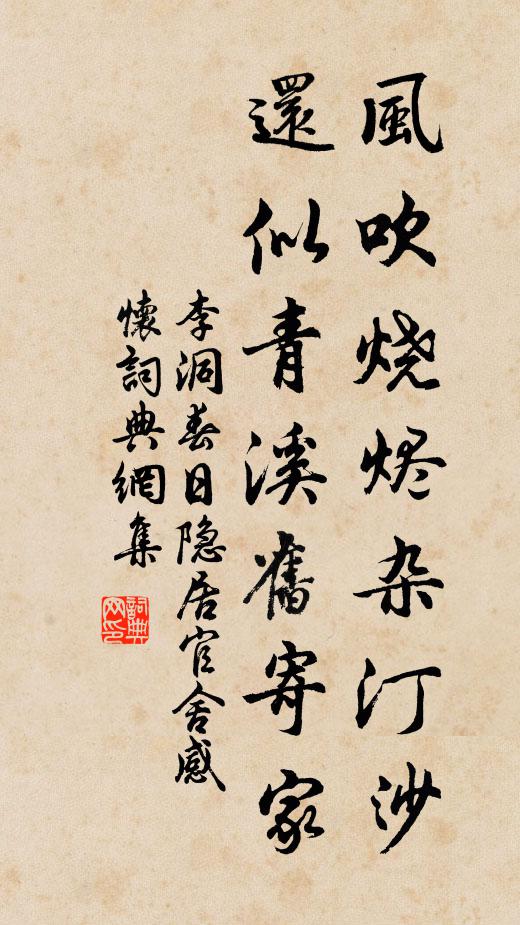 風吹烧烬杂汀沙
還似青溪舊寄家
李洞春日隐居官舍感
懷詞典網集
詞典网印